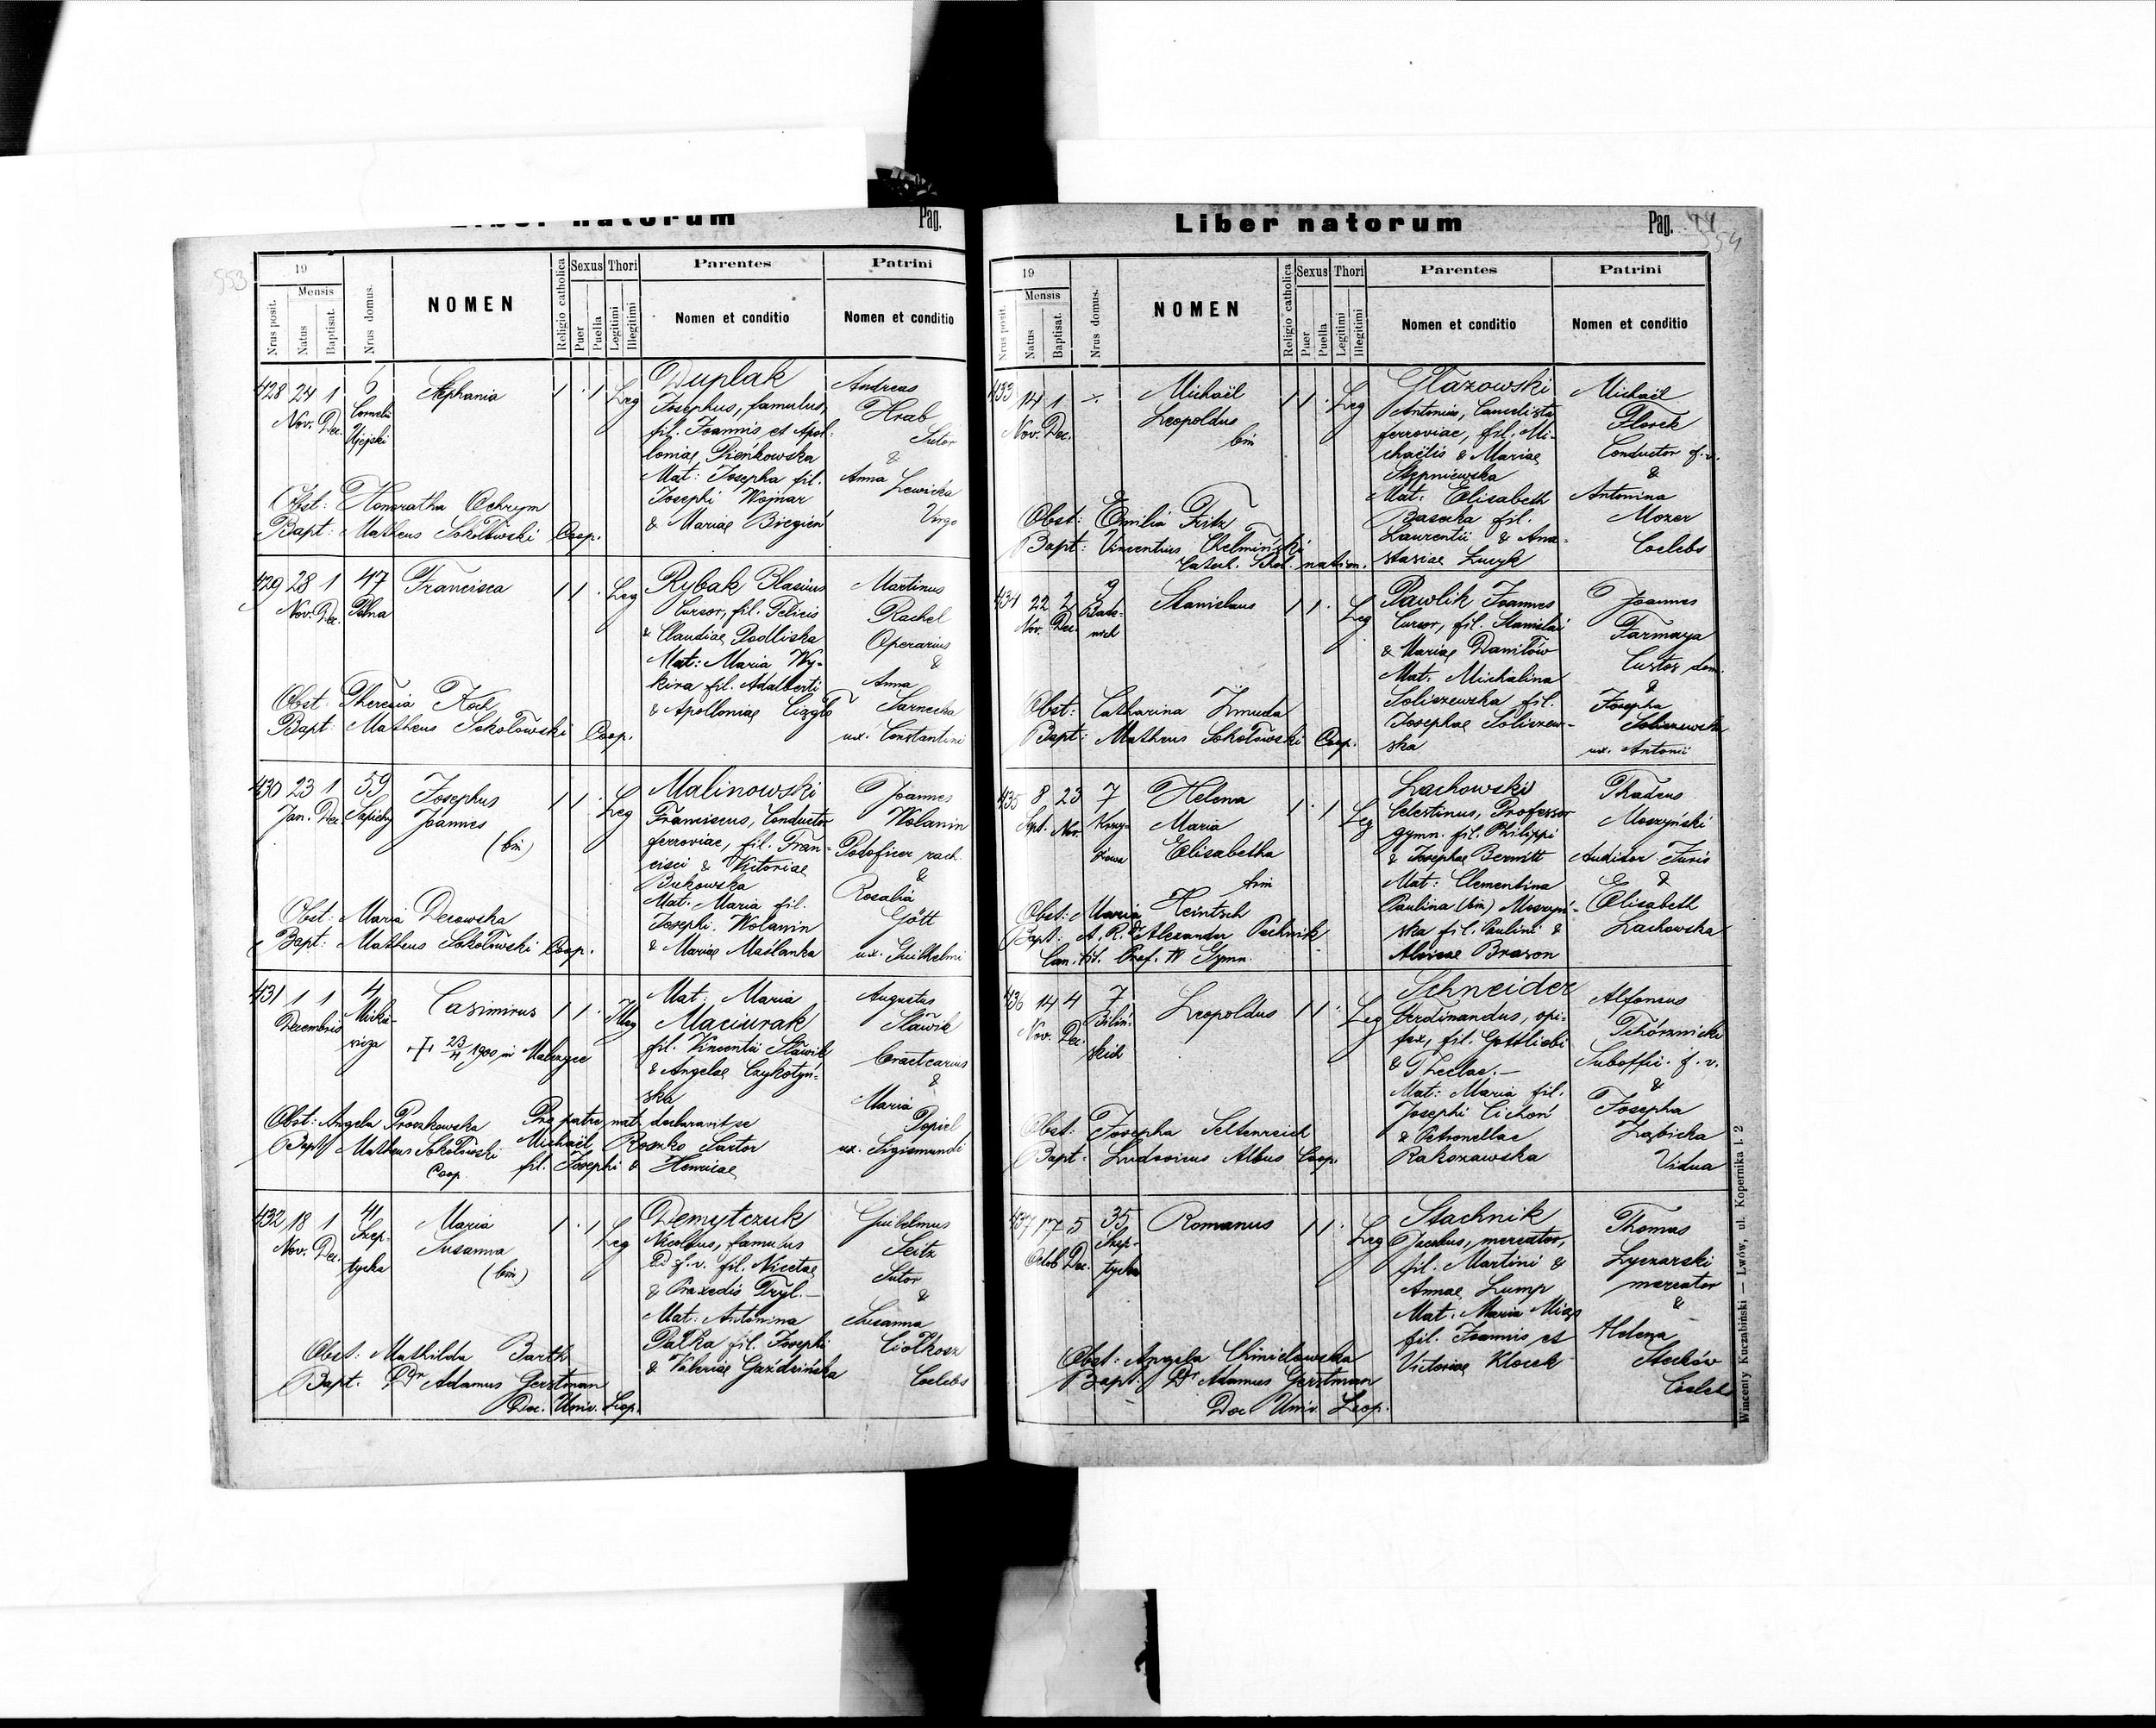 Liber natorum Pag.
553
19
Mensis
Nrus posit.
Natus
Baptisat.
Nrus domus.
NOMEN
Religio catholica
Sexus
Puer
Puella
Thori
Legitimi
Illegitimi
Parentes
Nomen et conditio
Patrini
Nomen et conditio
428 24 1 6 Stephania Leg Duplak Andreas
Nov. Dec. Cornelii Ujejski
Josephus, famulus, Hrab
fil. Joannis et Apol- Sutor
loniae Pieńkowska &
Mat: Josepha fil. Anna Lewicka
Josephi Wojnar Virgo
& Mariae Biegień
Obst: Honoratha Ochrym
Bapt: Matheus Sokołowski Coop.
429 28 1 47 Francisca Leg Rybak Blasius Martinus
Nov. Dec. Pełna Cursor, fil. Felicis Rachel
& Claudiae Podliska Operarius
Mat: Maria Wy- &
kira fil. Adalberti Anna
& Apolloniae Cizgło Tarnecka
Obst: Theresia Koch
Bapt: Matheus Sokołowski Coop. ux. Constantini
430 23 1 59 Josephus Leg Malinowski Joannes
Jan. Dec. Sapiehy Joannes Franciscus, Conductor Wolanin
(bin) ferroviae, fil. Fran- Podoficer rach.
cisci & Victoriae &
Bukowska Rosalia
Mat. Maria fil. Gött
Josephi Wolanin
& Mariae Maślanka ux. Guilhelmi
Obst: Maria Decowska
Bapt: Matheus Sokołowski Coop.
431 1 1 4 Casimirus Illeg Mat: Maria Augustus
Decembris Micki- wicza Maciurak Sławik
+ 23/4 1900 in
fil. Vincentii Sławik
& Angelae Czykotyń- &
ska Maria
Obst: Angela Proszkowska Pro patre nati declaravit se Popiel
Bapt: Matheus Sokołowski Michaël Romko Sartor ux. Sigismundi
Coop. fil. Josephi & Henricae
432 18 1 41 Maria Leg Demytczuk Guilelmus
Nov. Dec. Szep- tycka Susanna Nicolaus, famulus Seitz
(bin) f. v. fil. Nicetae Sutor
& Praxedis Tryl.— &
Mat: Antonina Susanna
Pałka fil. Josephi Ciołkosz
& Valeriae Gaździńska Coelebs
Obst: Mathilda Barth
Bapt: Dr Adamus Gerstman
Doc. Univ. Leop.
Liber natorum Pag. 44
554
19
Mensis
Nrus posit.
Natus
Baptisat.
Nrus domus.
NOMEN
Religio catholica
Sexus
Puer
Puella
Thori
Legitimi
Illegitimi
Parentes
Nomen et conditio
Patrini
Nomen et conditio
433 14 1 Michaël Leg Głazowski Michaël
Nov. Dec. Leopoldus Antonius, Cancelista Florek
bin ferroviae, fil. Mi- Conductor f. v.
chaëlis & Mariae &
Stępniewska Antonina
Mat: Elisabeth Mozer
Basecka fil. Coelebs
Laurentii & Ana-
stasiae Lucyk
Obst: Emilia Fritz
Bapt: Vincentius Chełmiński
Catech. Schol. nation.
434 22 2 9 Stanislaus Leg Pawlik Joannes Joannes
Nov. Dec. Cursor, fil. Stanislai Farmaga
& Mariae Daniłów Custos dom.
Mat. Michalina &
Soliszewska fil. Josepha
Josephae Soliszew- Soliszewska
ska ux. Antonii
Obst: Catharina Żmuda
Bapt: Matheus Sokołowski Coop.
435 8 23 7 Helena Leg Lachowski Thadeus
Sept. Nov. Krzy- żowa Maria Celestinus, Professor Moszyński
Elisabetha gymn. fil. Philippi Auditor Juris
trin & Josephae Bernitt &
Mat: Clementina Elisabeth
Paulina (bin) Moszyń- Lachowska
ska fil. Paulini &
Aloisae Brason
Obst: Maria Heintsch
Bapt: A. R. Dr Alexander Pechnik
Can. tit. Prof. IV Gymn.
436 14 4 7 Leopoldus Leg Schneider Alfonsus
Nov. Dec. Biliń- skich Ferdinandus, opi- Tchórznicki
fex, fil. Gottliebi Suboffic. f. v.
& Theclae.— &
Mat: Maria fil. Josepha
Josephi Cichoń Zębicka
& Petronellae Vidua
Rakozawska
Obst: Josepha Seltenreich
Bapt: Ludovicus Albus Coop.
437 17 5 35 Romanus Leg Stachnik Thomas
Octob Dec. Szep- tycka Jacobus, mercator, Łyczarski
fil. Martini & mercator
Annae Lump &
Mat: Maria Mizs Helena
fil. Joannis et Stecków
Victoriae Klocek Coeleb
Obst: Angela Chmielowska
Bapt: Dr Adamus Gerstman
Doc Univ. Leop.
Wincenty Kuczabiński — Lwów, ul. Kopernika l. 2